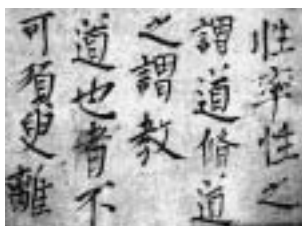 性率性之
謂道脩道
之謂教
道也者不
可須臾離